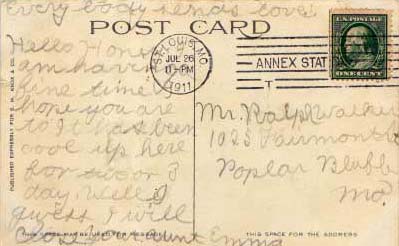 Every body sends love
POST CARD
ST. LOUIS, MO.
JUL 26
11-PM
1911
ANNEX STAT
T
U.S. POSTAGE
ONE CENT
Hello Hon
am havin
fine time
hope you are
to It has been
cool up here
for two or 3
day. Well I
guess I will
Close Your aunt Emma
Mr. Ralph Walker
1025 Fairmont St
Poplar Bluff
Mo.
PUBLISHED EXPRESSLY FOR S. H. KNOX & CO.
THIS SPACE MAY BE USED FOR MESSAGE
THIS SPACE FOR THE ADDRESS